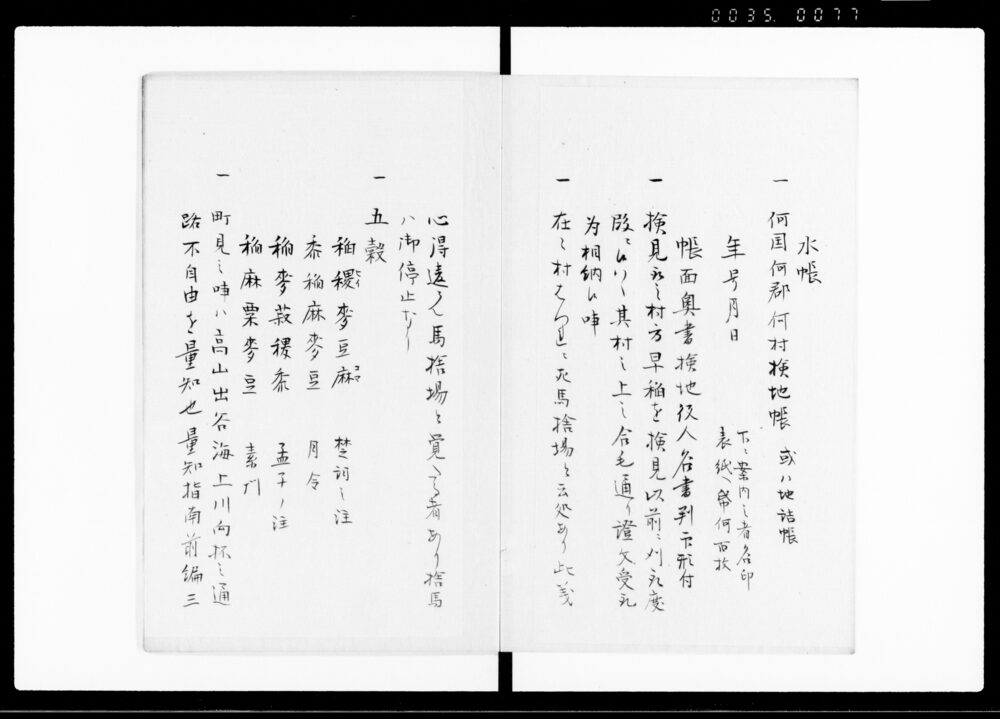 0035.0077
水帳
一 何国何郡何村検地帳 或ハ地詰帳
年号月日
下ニ案内之者名印
表紙ヘ幣何百枚
帳面奥書検地役人名書判印形付
一 検見前之村方早稲を検見以前ニ刈取度
段ニ候ハヽ其村之上之合毛通り證文受取
為相納候事
一 在之村はつれニ死馬捨場と云処あり此義
心得違て馬捨場と覚へる者あり捨馬
ハ御停止なり
一 五穀
稲稷麥豆麻 楚詞之注
黍稲麻麥豆 月令
稲麥菽稷黍 孟子ノ注
稲麻栗麥豆 素問
一 町見之事ハ高山出谷海上川向抔之通
路不自由を量知也量知指南前編三